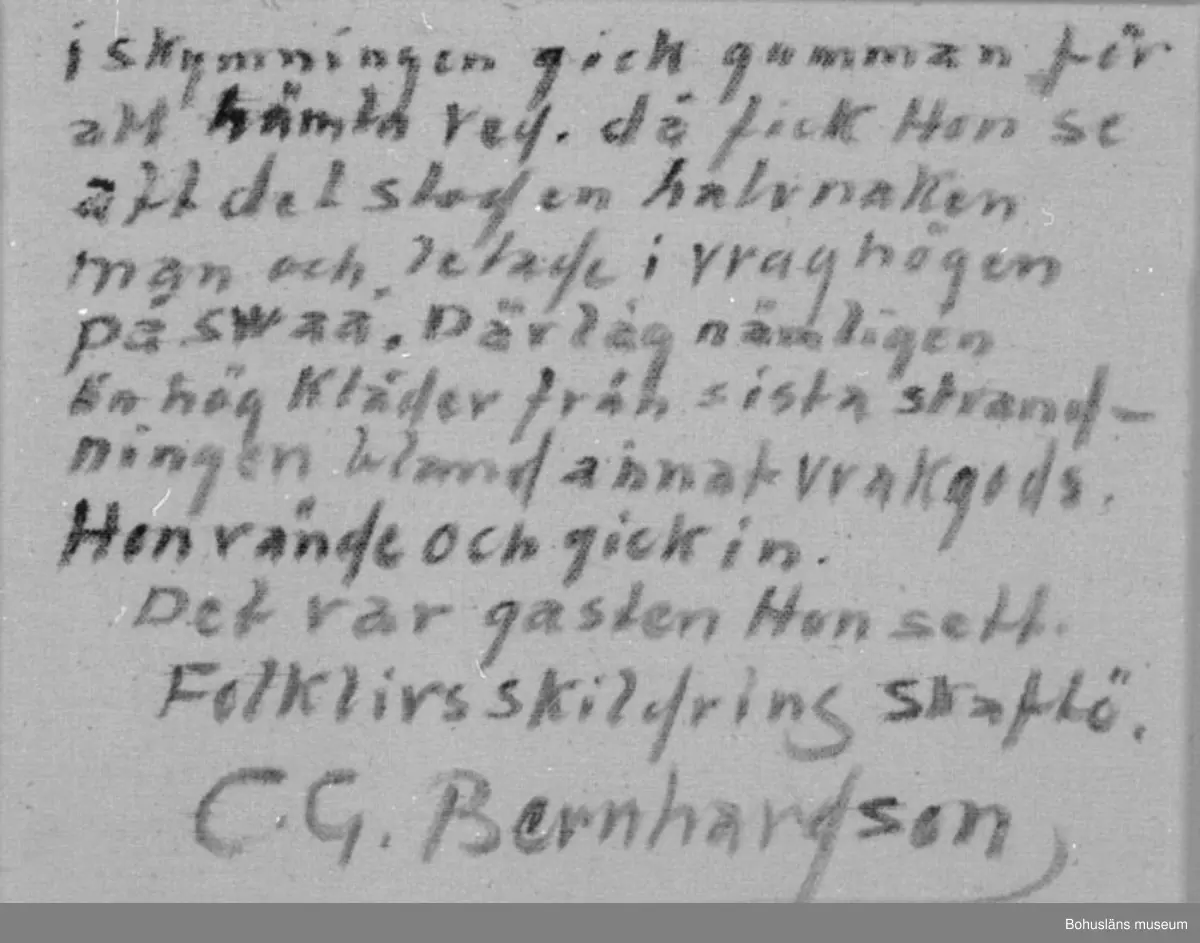 i skymningen gick gumman för
att hämta ved. då fick Hon se
att det stod en halvnaken
man och letade i vraghögen
på swaa. Där låg nämligen
En hög Kläder från sista strand-
ningen bland annat vrakgods.
Hon vände och gick in.
Det var gasten Hon sett.
Folklivsskildring Skaftö.
C.G. Bernhardson
Bohusläns museum